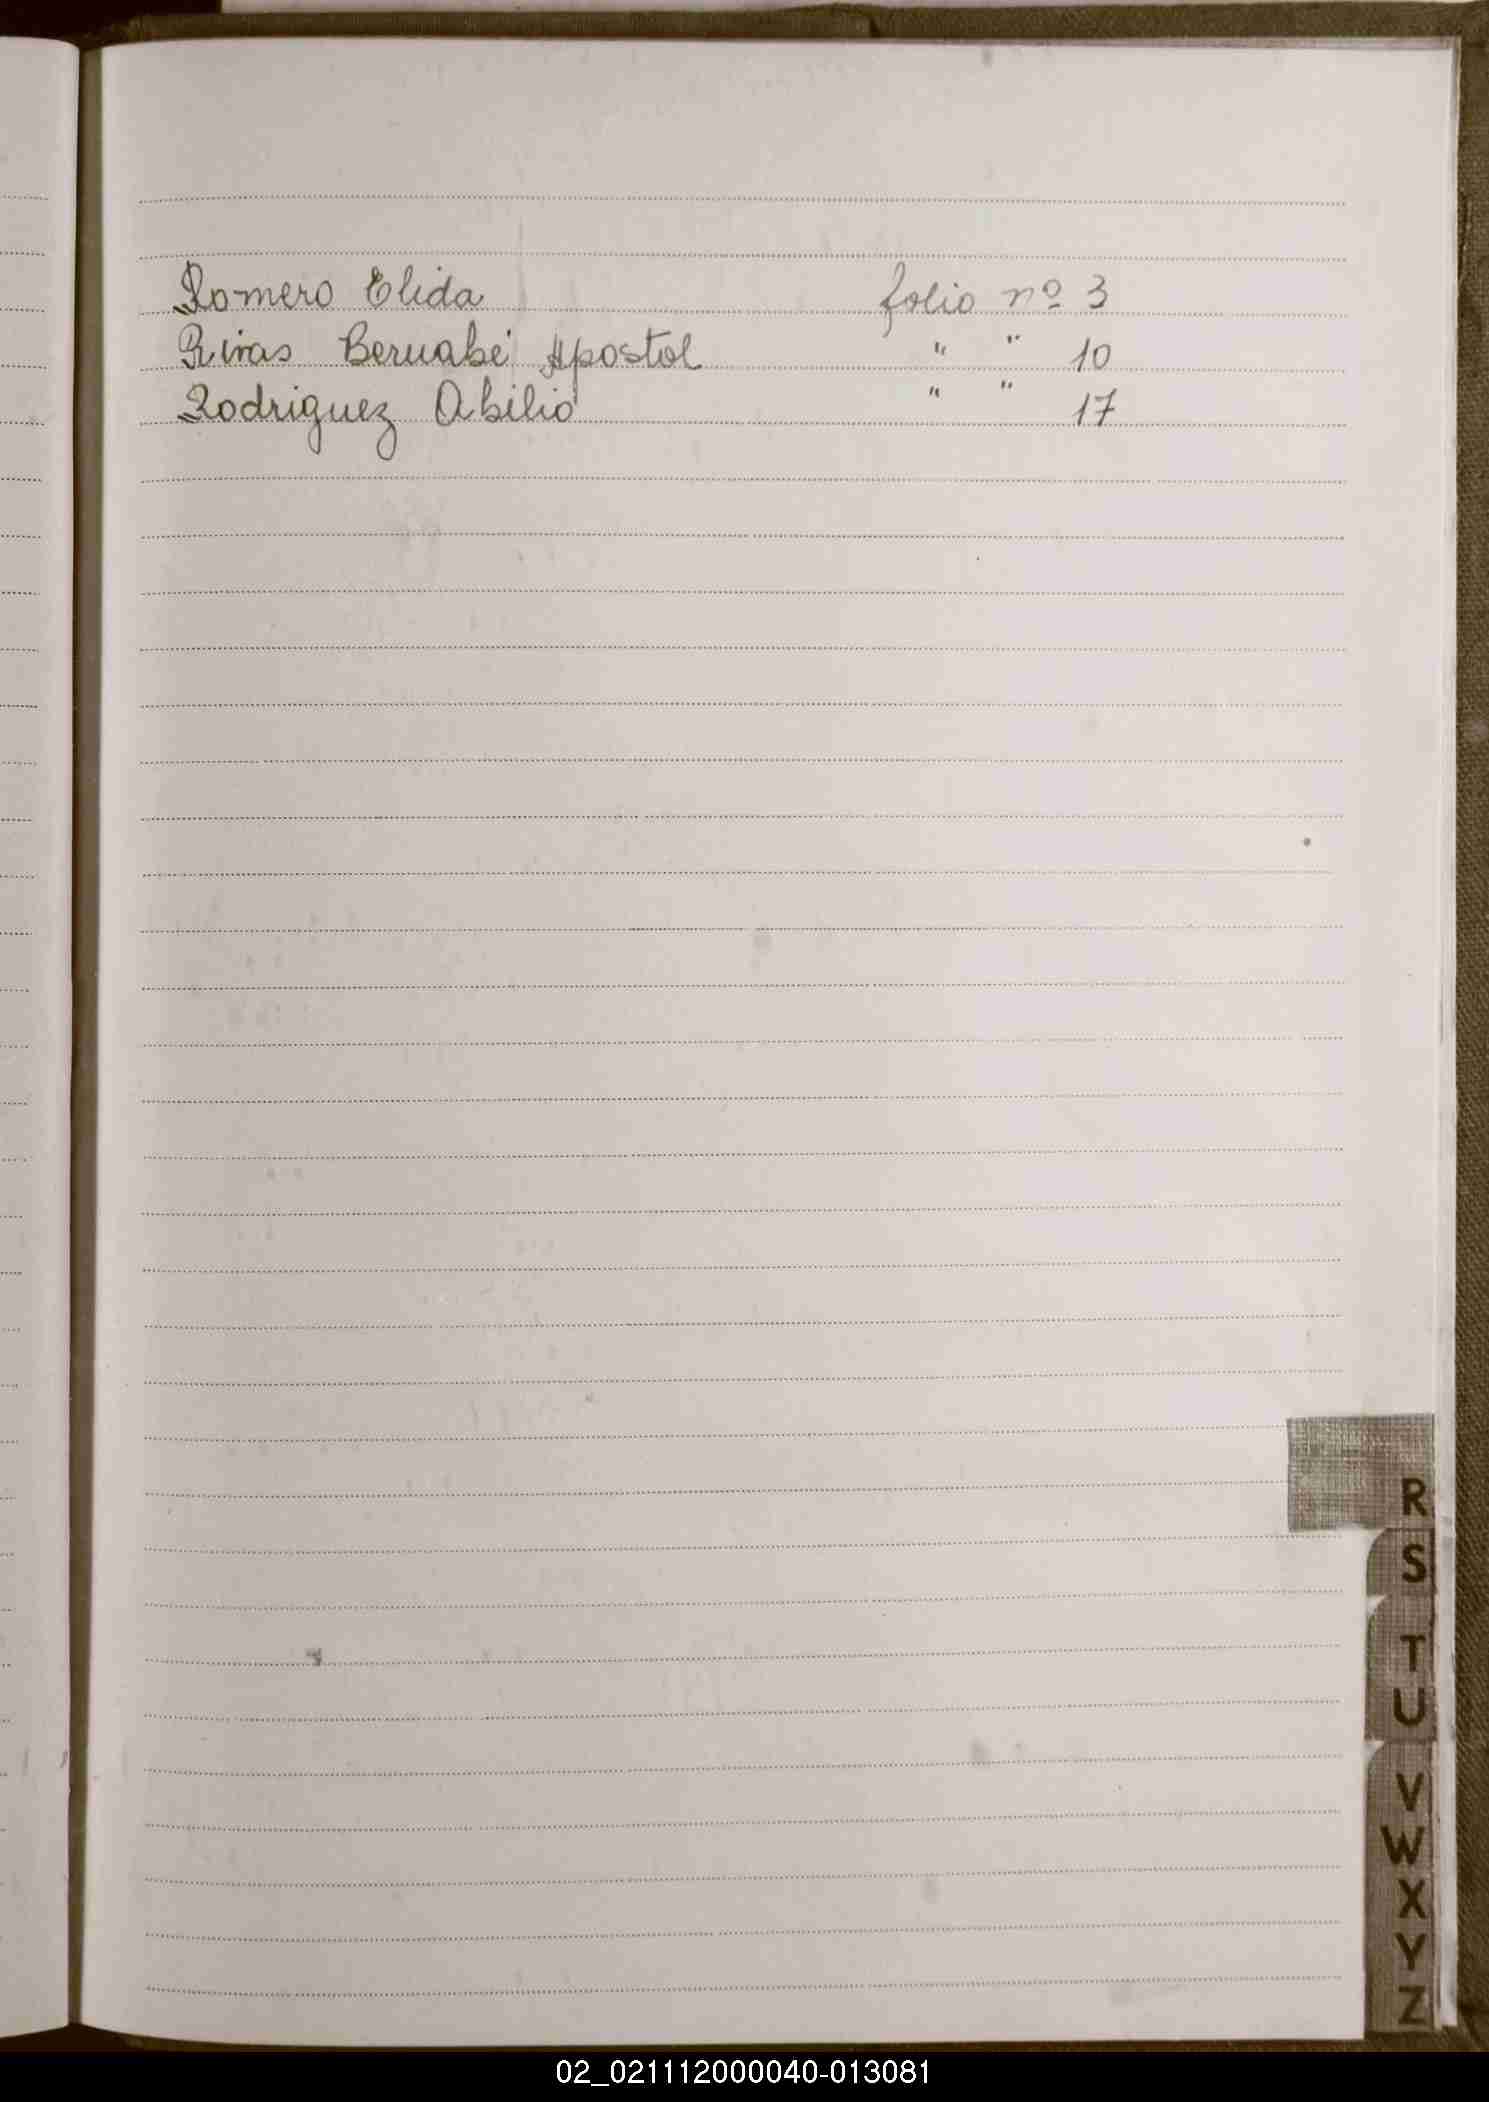 Romero Elida folio nº 3
Rivas Bernabé Apostol " " 10
Rodriguez Abilio " " 17
R
S
T
U
V
W
X
Y
Z
02_021112000040-013081